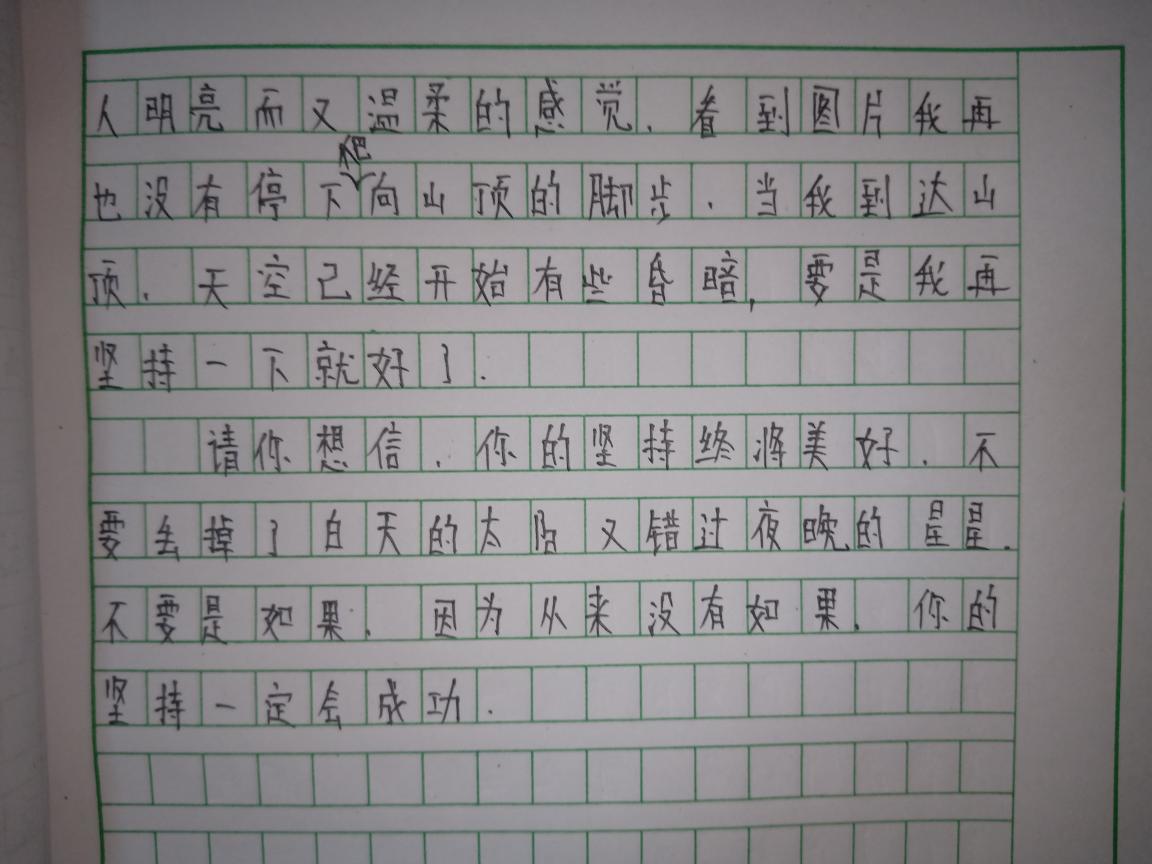 人明亮而又温柔的感觉.看到图片我再
也没有停下爬向山顶的脚步.当我到达山
顶.天空已经开始有些昏暗,要是我再
坚持一下就好了.
请你想信.你的坚持终将美好.不
要丢掉了白天的太阳又错过夜晚的星星.
不要是如果.因为从来没有如果.你的
坚持一定会成功.